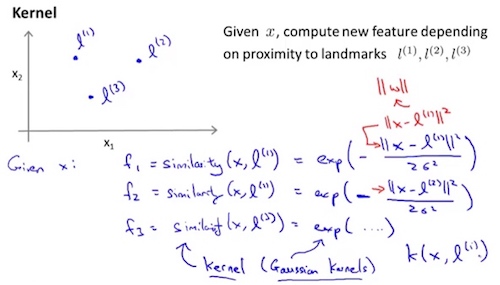 Kernel
Given x, compute new feature depending
on proximity to landmarks l^(1), l^(2), l^(3)
l^(1)
l^(2)
l^(3)
x₂
x₁
||w||
||x - l^(1)||²
Given x: f₁ = similarity(x, l^(1)) = exp(- ||x - l^(1)||² / 2σ²)
f₂ = similarity(x, l^(2)) = exp(- ||x - l^(2)||² / 2σ²)
f₃ = similarity(x, l^(3)) = exp(...)
kernel (Gaussian kernels)
k(x, l^(i))